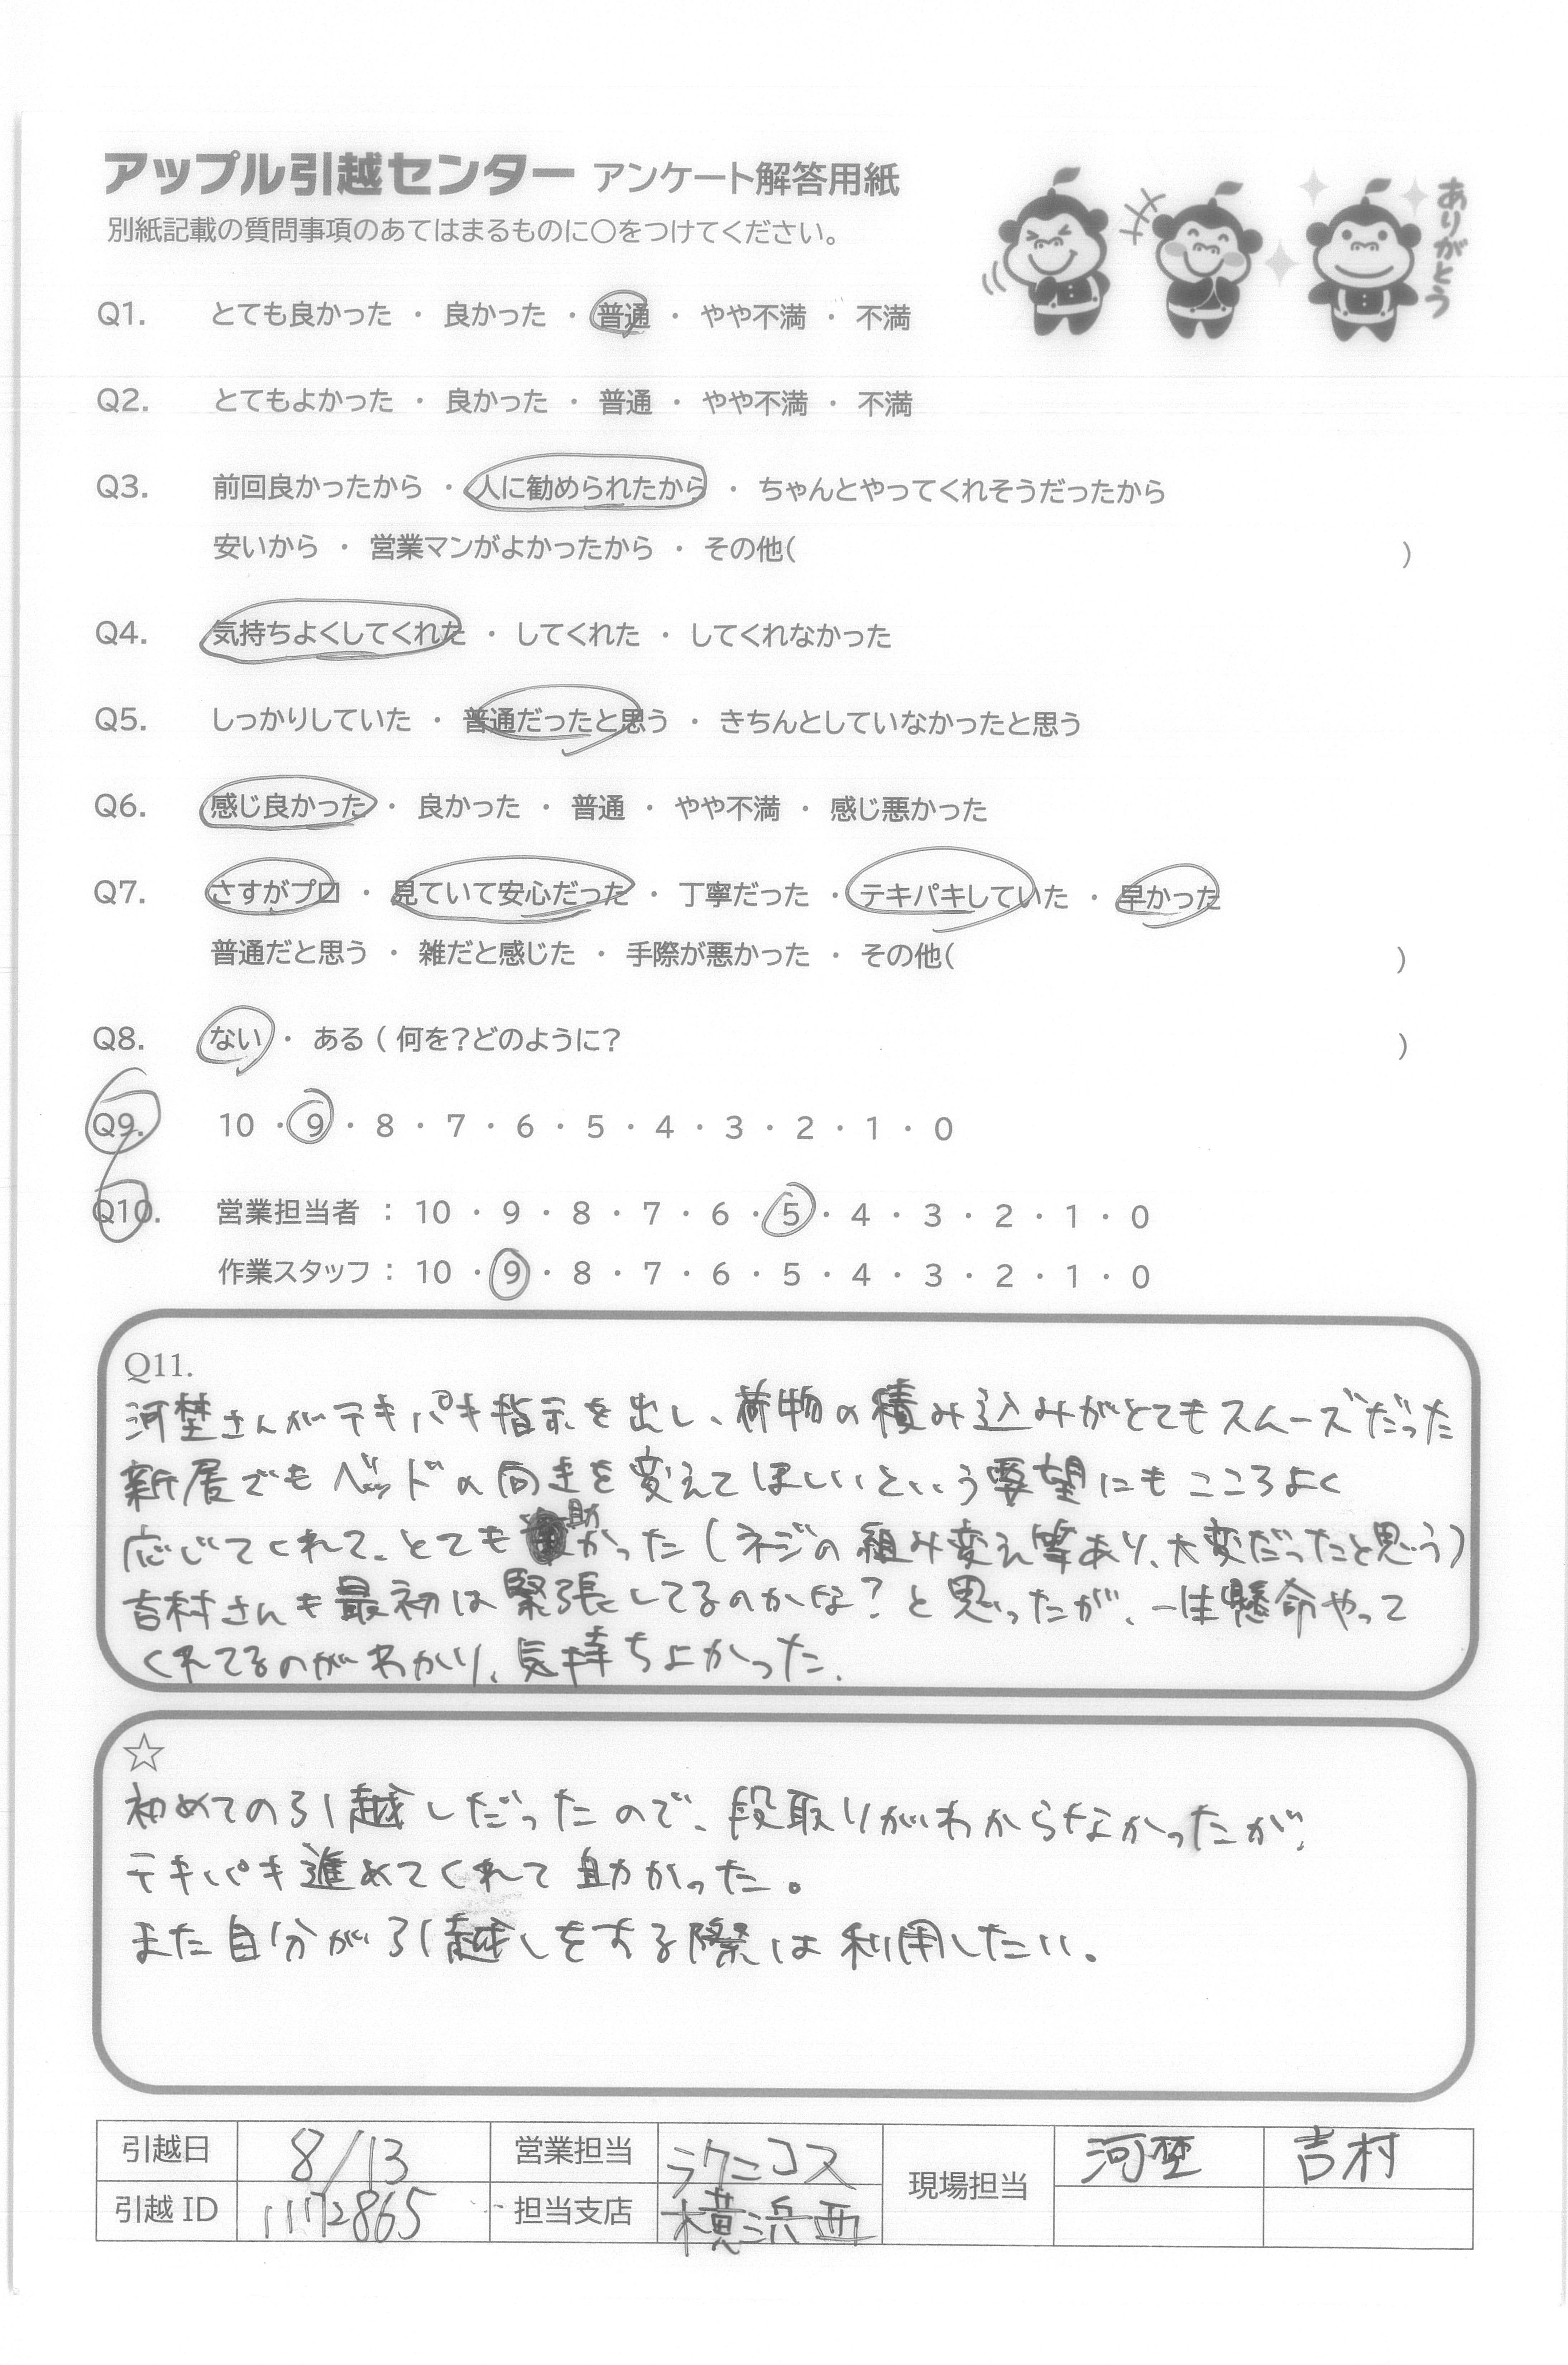 アップル引越センター アンケート解答用紙
ありがとう
別紙記載の質問事項のあてはまるものに○をつけてください。
Q1. とても良かった ・ 良かった ・ 普通 ・ やや不満 ・ 不満
Q2. とてもよかった ・ 良かった ・ 普通 ・ やや不満 ・ 不満
Q3. 前回良かったから ・ 人に勧められたから ・ ちゃんとやってくれそうだったから
安いから ・ 営業マンがよかったから ・ その他( )
Q4. 気持ちよくしてくれた ・ してくれた ・ してくれなかった
Q5. しっかりしていた ・ 普通だったと思う ・ きちんとしていなかったと思う
Q6. 感じ良かった ・ 良かった ・ 普通 ・ やや不満 ・ 感じ悪かった
Q7. さすがプロ ・ 見ていて安心だった ・ 丁寧だった ・ テキパキしていた ・ 早かった
普通だと思う ・ 雑だと感じた ・ 手際が悪かった ・ その他( )
Q8. ない ・ ある ( 何を?どのように? )
Q9. 10 ・ 9 ・ 8 ・ 7 ・ 6 ・ 5 ・ 4 ・ 3 ・ 2 ・ 1 ・ 0
Q10. 営業担当者 : 10 ・ 9 ・ 8 ・ 7 ・ 6 ・ 5 ・ 4 ・ 3 ・ 2 ・ 1 ・ 0
作業スタッフ : 10 ・ 9 ・ 8 ・ 7 ・ 6 ・ 5 ・ 4 ・ 3 ・ 2 ・ 1 ・ 0
Q11.
河埜さんがテキパキ指示を出し、荷物の積み込みがとてもスムーズだった
新居でもベッドの向きを変えてほしいという要望にもこころよく
応じてくれて、とても助かった(ネジの組み変え等あり、大変だったと思う)
吉村さんも最初は緊張してるのかな?と思ったが、一生懸命やって
くれてるのがわかり、気持ちよかった。
☆
初めての引越しだったので、段取りがわからなかったが、
テキパキ進めてくれて助かった。
また自分が引越しをする際は利用したい。
引越日 8/13 営業担当 ラクニコス 現場担当 河埜 吉村
引越ID 1172865 担当支店 横浜西